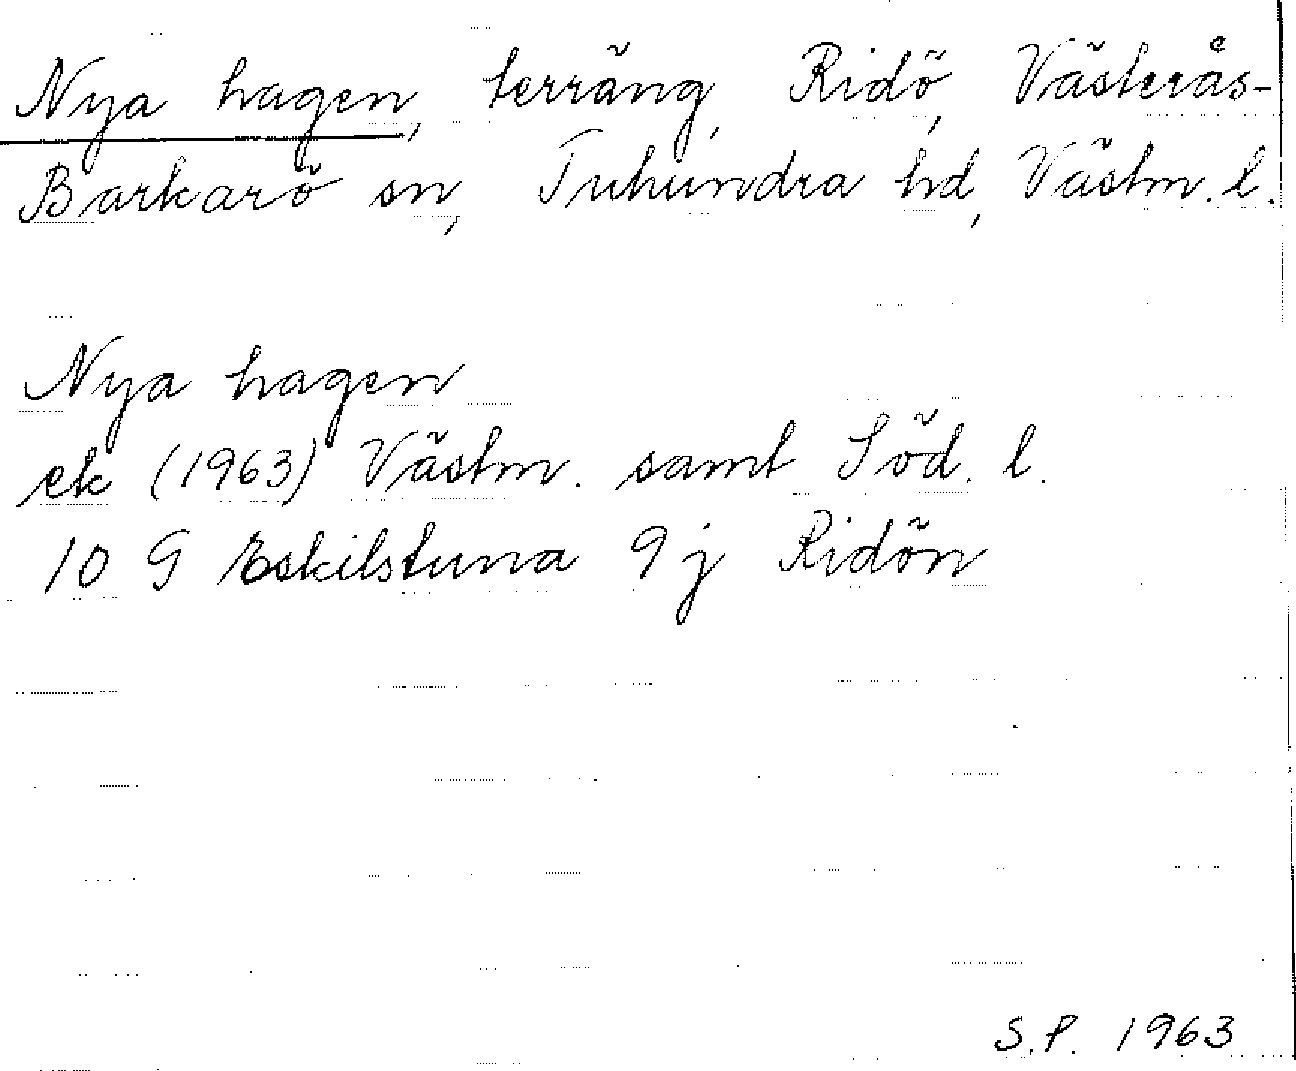 Nya hagen, terräng, Ridö, Västerås-
Barkarö sn, Tuhundra hd, Västm. l.
Nya hagen
ek (1963) Västm. samt Söd. l.
10 G Eskilstuna 9 j Ridön
S.P. 1963